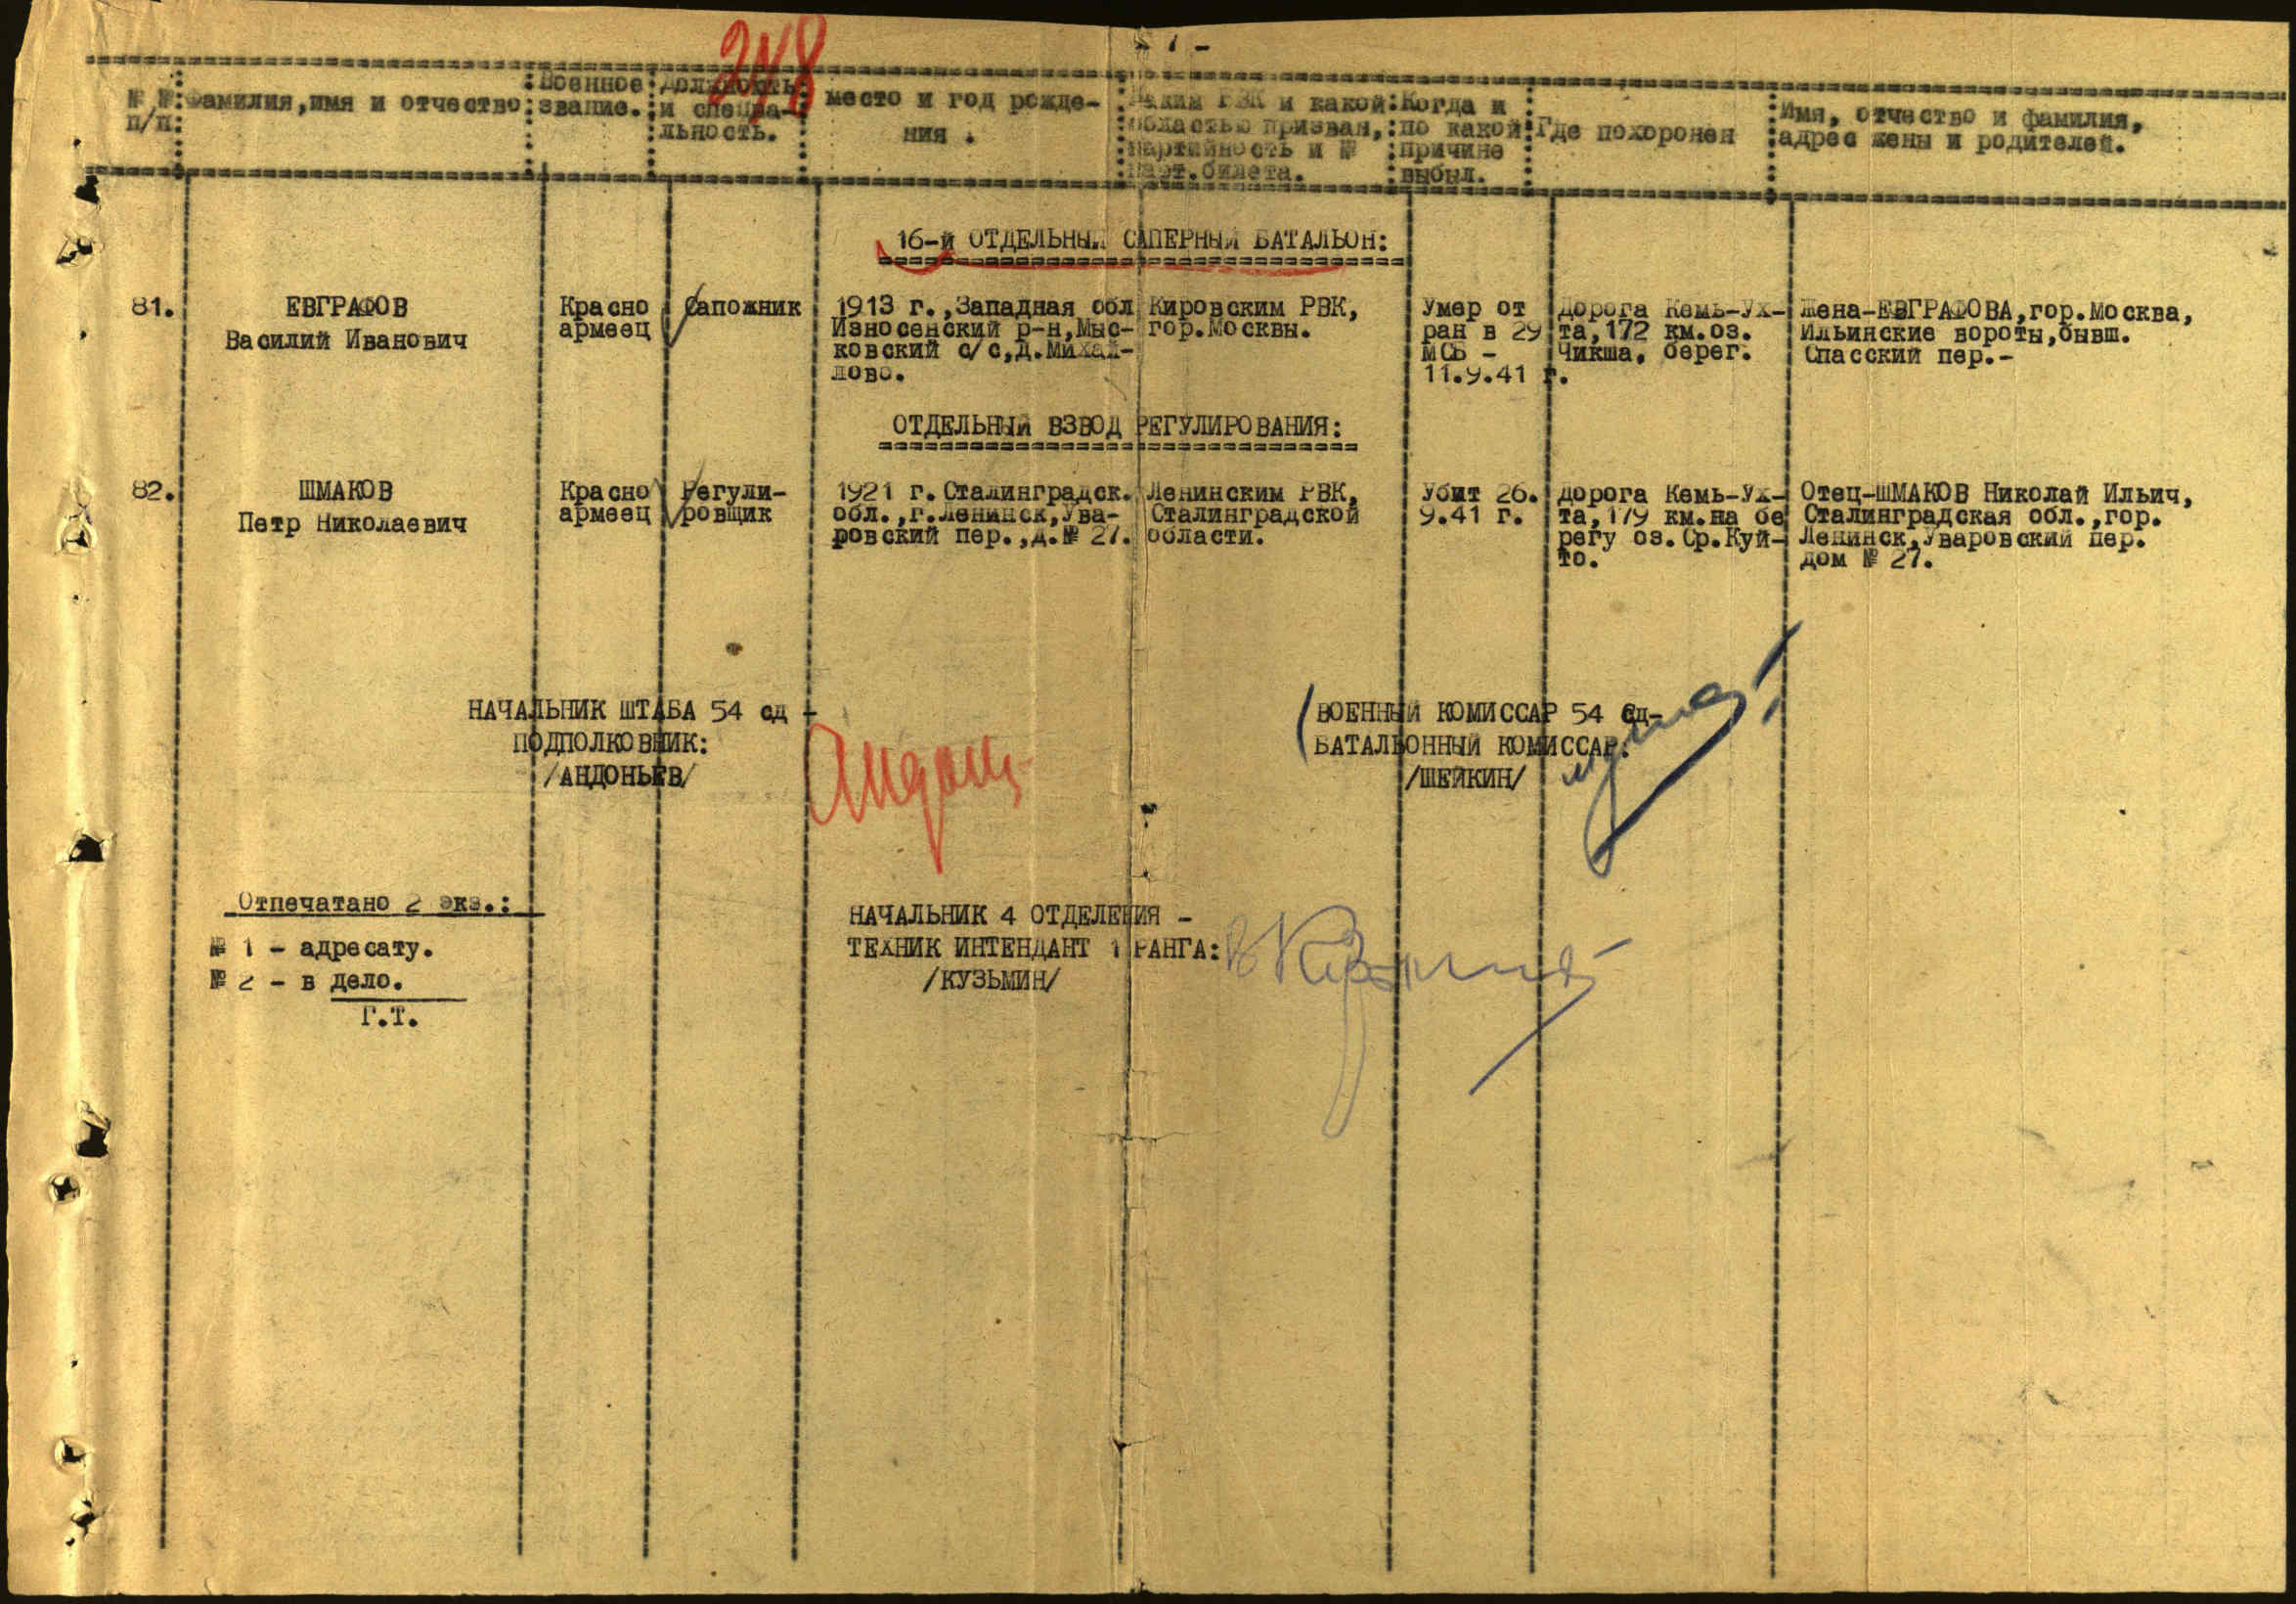 248
- 1 -
№ №
п/п:
Фамилия, имя и отчество:
Военное
звание.
Должность
и специа-
льность.
Место и год рожде-
ния .
Каким РВК и какой
областью призван,
партийность и №
парт.билета.
Когда и
по какой
причине
выбыл.
Где похоронен
Имя, отчество и фамилия,
адрес жены и родителей.
16-й ОТДЕЛЬНЫЙ САПЕРНЫЙ БАТАЛЬОН:
81.
ЕВГРАФОВ
Василий Иванович
Красно
армеец
Сапожник
1913 г.,Западная обл
Износенский р-н,Мыс-
ковский с/с,д.Михай-
лово.
Кировским РВК,
гор.Москвы.
Умер от
ран в 29
МСБ -
11.9.41 г.
Дорога Кемь-Ух-
та,172 км.оз.
Чикша, берег.
Жена-ЕВГРАФОВА,гор.Москва,
Ильинские вороты,бывш.
Спасский пер.-
ОТДЕЛЬНЫЙ ВЗВОД РЕГУЛИРОВАНИЯ:
82.
ШМАКОВ
Петр Николаевич
Красно
армеец
Регули-
ровщик
1921 г. Сталинградск.
обл.,г.Ленинск,Ува-
ровский пер.,д.№ 27.
Ленинским РВК,
Сталинградской
области.
Убит 26.
9.41 г.
Дорога Кемь-Ух-
та,179 км.на бе
регу оз.Ср.Куй-
то.
Отец-ШМАКОВ Николай Ильич,
Сталинградская обл.,гор.
Ленинск,Уваровский пер.
дом № 27.
НАЧАЛЬНИК ШТАБА 54 сд -
ПОДПОЛКОВНИК:
/АНДОНЬЕВ/
ВОЕННЫЙ КОМИССАР 54 сд-
БАТАЛЬОННЫЙ КОМИССАР:
/ШЕЙКИН/
Отпечатано 2 экз.:
№ 1 - адресату.
№ 2 - в дело.
Г.Т.
НАЧАЛЬНИК 4 ОТДЕЛЕНИЯ -
ТЕХНИК ИНТЕНДАНТ 1 РАНГА:
/КУЗЬМИН/